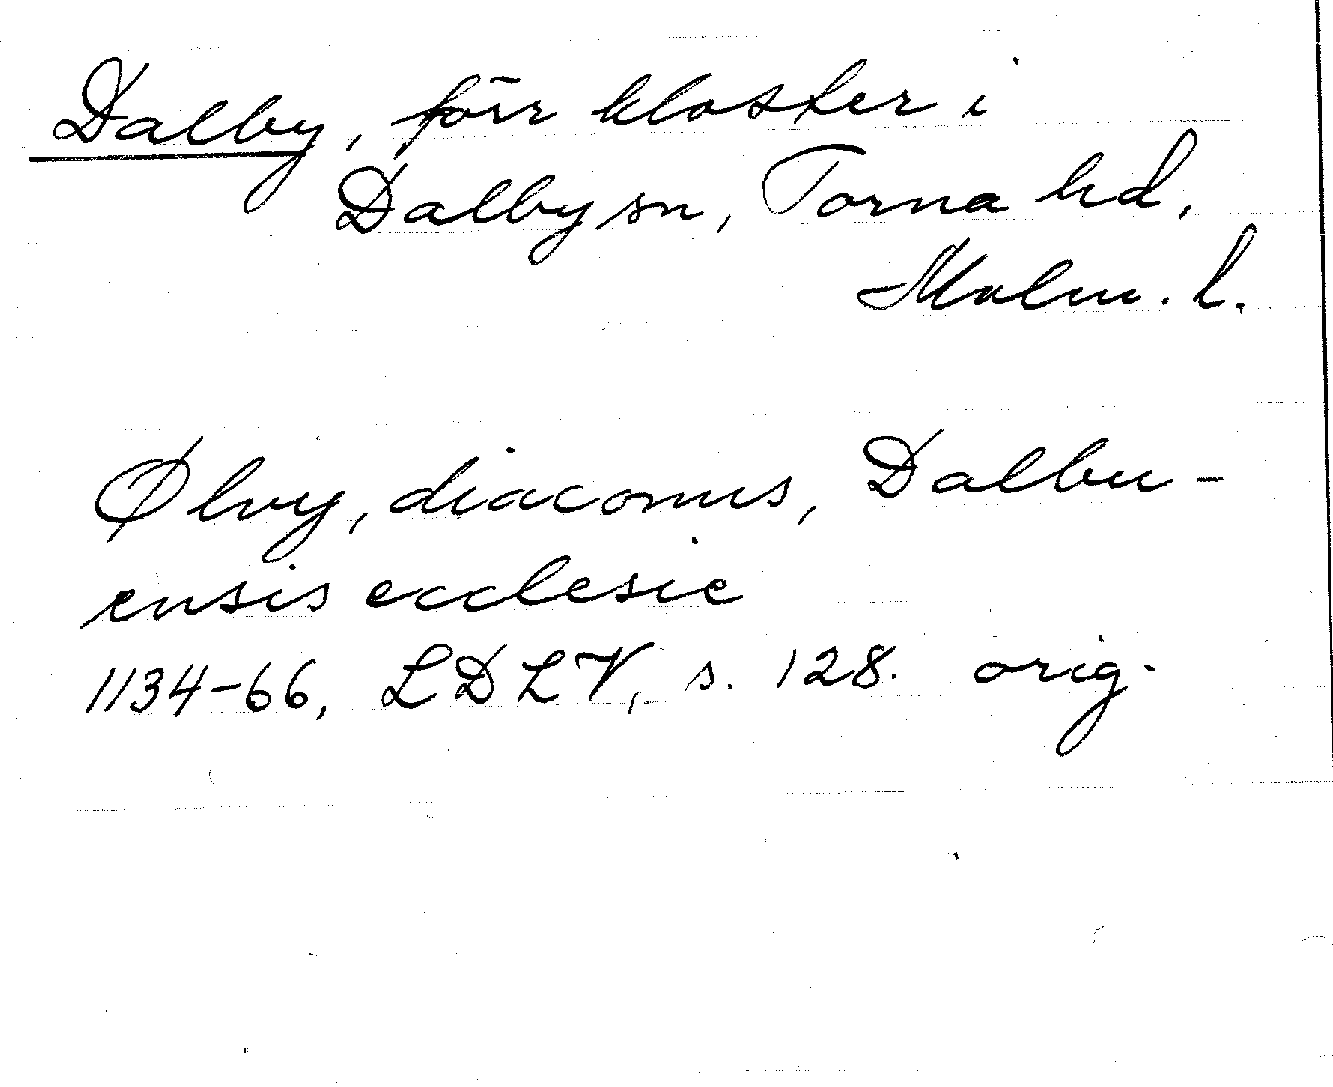 Dalby, förr kloster i
Dalby sn, Torna hd,
Malm. l.
Ølvy, diaconus, Dalbu-
ensis ecclesie
1134-66, LDLV, s. 128. orig.